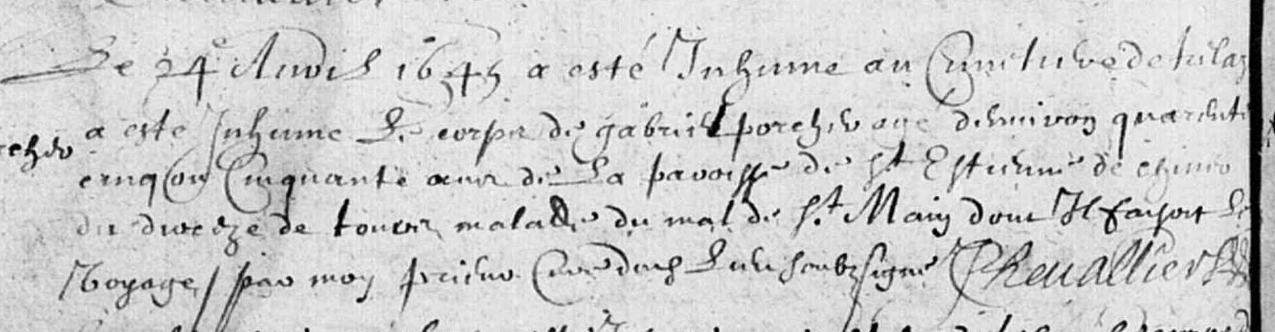 Le 24e Avvil 1645 a esté Inhume au Cymetiere de
rcher a este Inhume Le corps de gabriel porcher age denviron quarente
cinq ou Cinquante ans de La paroisse de St Estienne de chinon
du dioceze de tours malade du mal de St Main dont Il faisoit Le
Voyage / par moy prieur Cure dud Lieu soubzsigne Chevallier